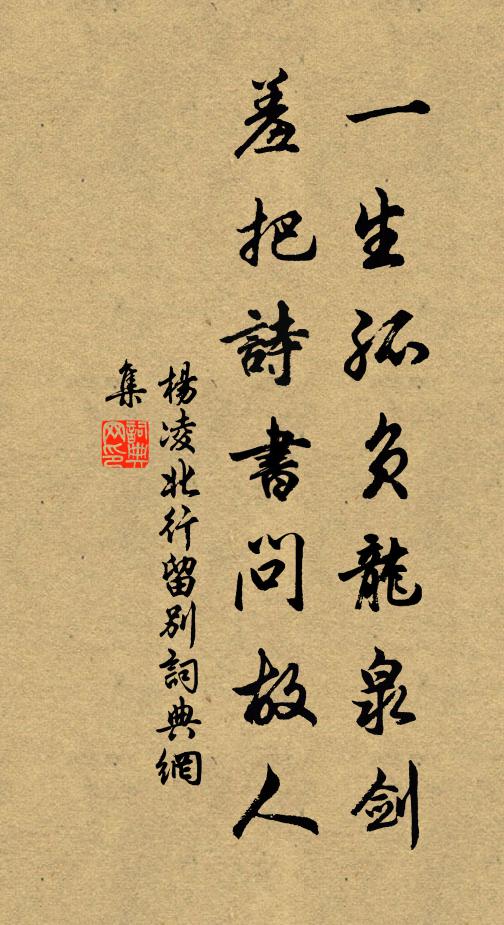 一生孤負龍泉劍
羞把詩書問故人
楊凌北行留別詞典網
集
詞典
网印